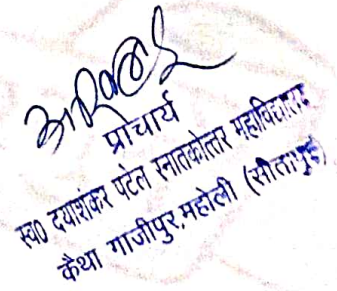 प्राचार्य
स्व0 दयाशंकर पटेल स्नातकोत्तर महाविद्यालय
कैथा गाजीपुर,महोली (सीतापुर)